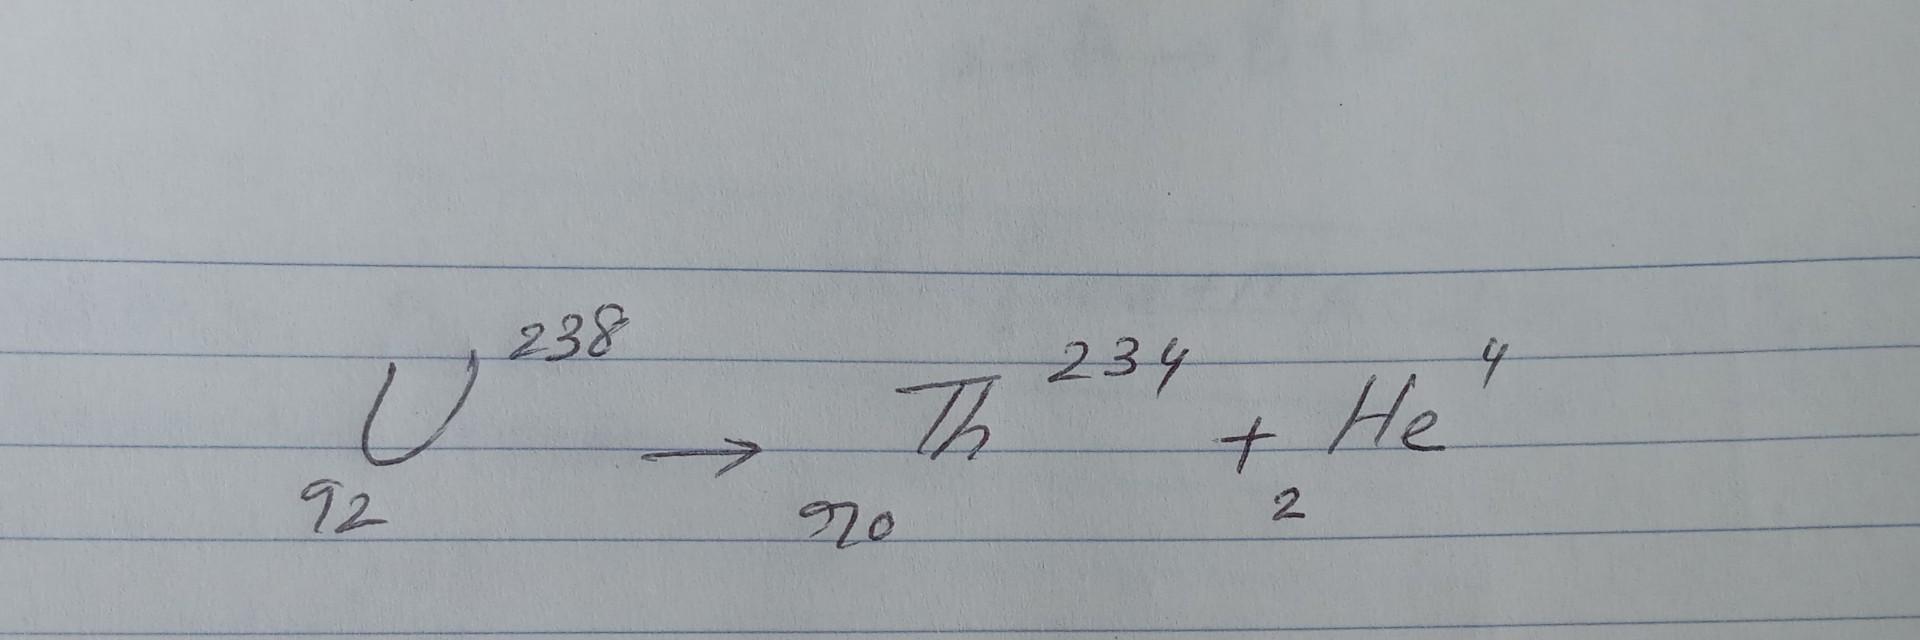 ₉₂U²³⁸ → ₉₀Th²³⁴ + ₂He⁴